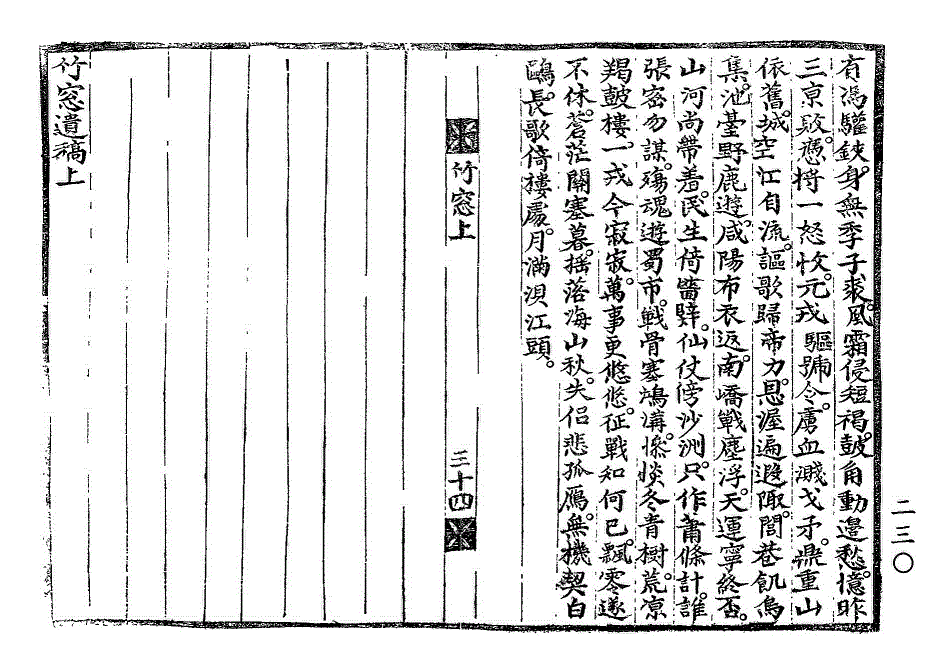 有馮驩鋏身無季子裘。風霜侵短褐。鼓角動邊愁。憶昨
三京敗。憑將一怒收。元戎驅號令。虜血濺戈矛。鼎重山
依舊。城空江自流。謳歌歸帝力。恩渥遍遐陬。閭巷飢烏
集。池臺野鹿遊。咸陽布衣返。南嶠戰塵浮。天運寧終否。
山河尚帶羞。民生倚醫
仙仗傍沙洲。只作蕭條計。誰
張密勿謀。殤魂遊蜀市。戰骨塞鴻溝。慘惔冬青樹。荒凉
羯鼓樓。一戎今寂寂。萬事更悠悠。征戰知何已。飄零遂
不休。蒼茫關塞暮。搖落海山秋。失侶悲孤鴈。無機契白
鷗。長歌倚樓處。月滿浿江頭。
竹窓上
三十四
竹窓遺稿上
二三〇